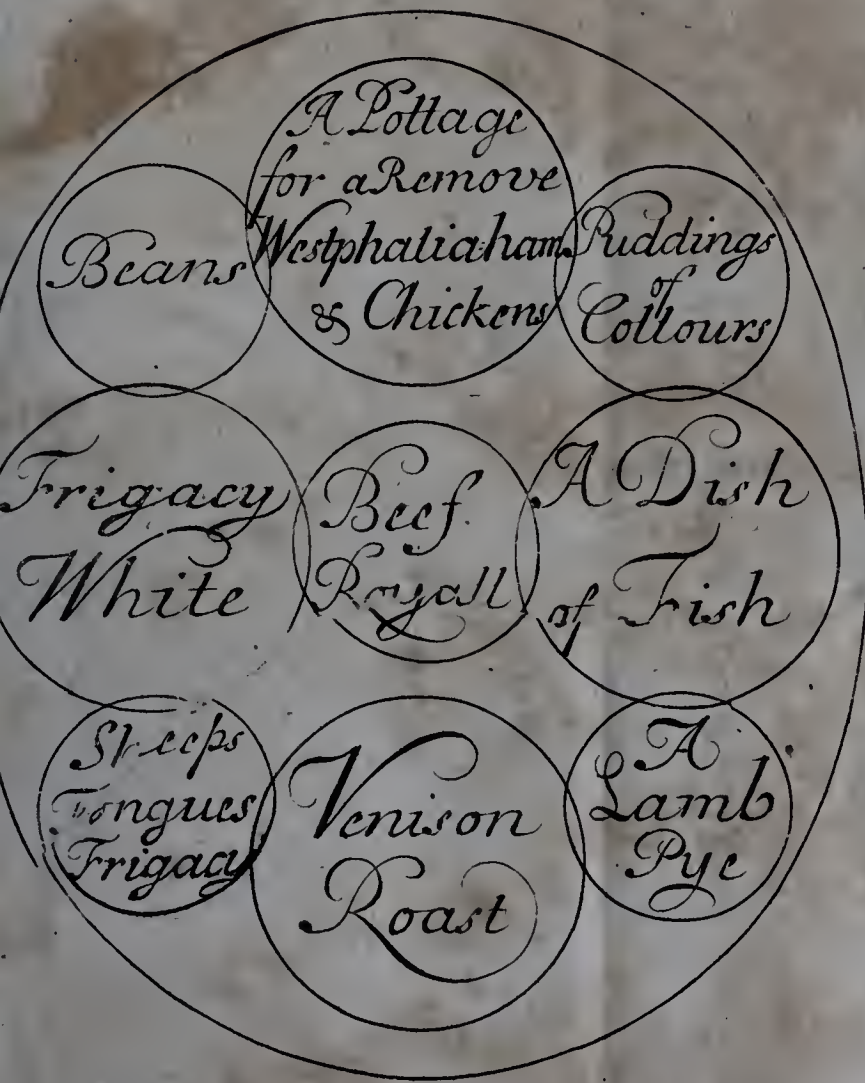 A Pottage
for a Remove
Westphalia ham
& Chickens
Beans
Puddings
of
Collours
Frigacy
White
Beef
Royall
A Dish
of Fish
Sheeps
Tongues
Frigacy
Venison
Roast
A
Lamb
Pye